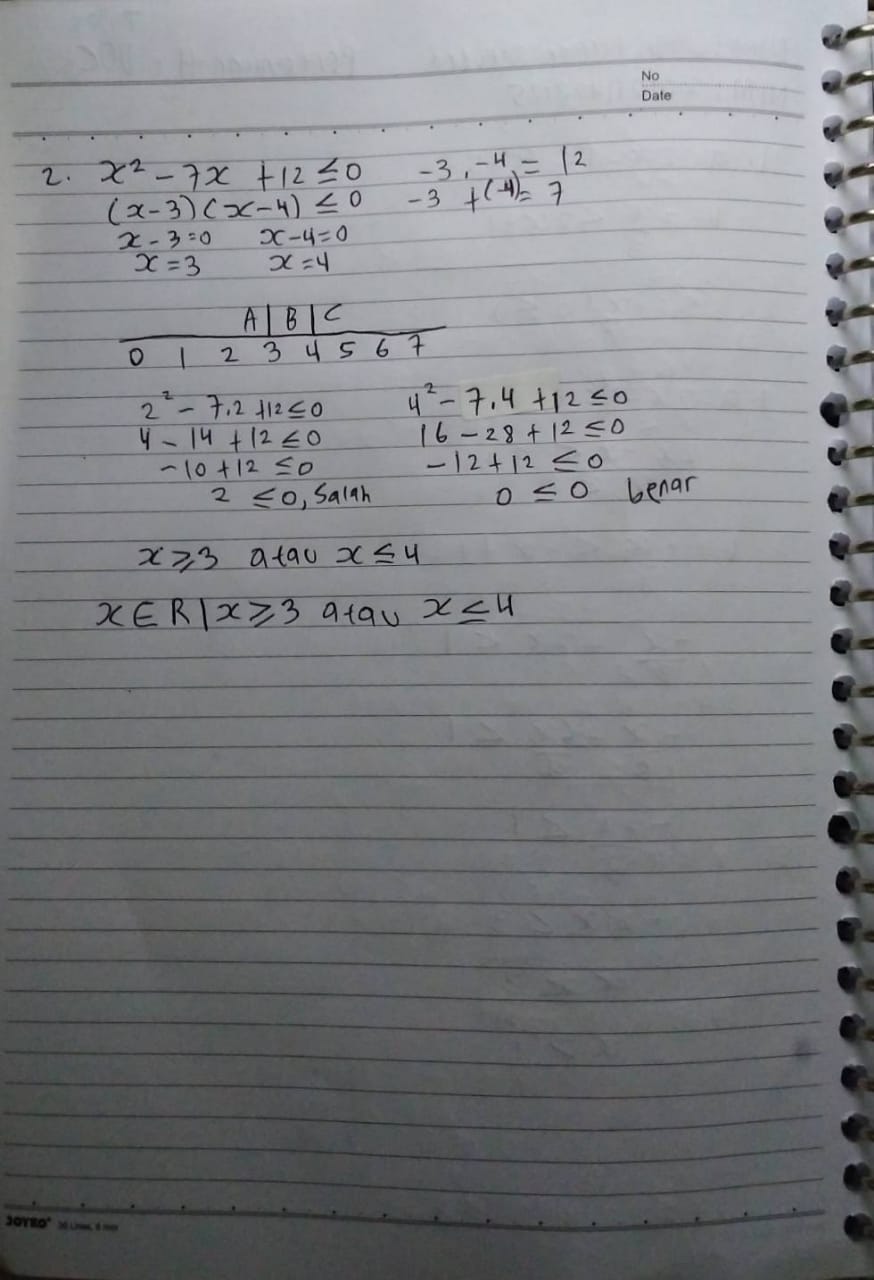 No
Date
2. x² - 7x + 12 ≤ 0 -3 . -4 = 12
(x-3)(x-4) ≤ 0 -3 + (-4) = 7
x - 3 = 0 x - 4 = 0
x = 3 x = 4
A | B | C
0 1 2 3 4 5 6 7
2² - 7.2 + 12 ≤ 0 4² - 7.4 + 12 ≤ 0
4 - 14 + 12 ≤ 0 16 - 28 + 12 ≤ 0
-10 + 12 ≤ 0 -12 + 12 ≤ 0
2 ≤ 0, Salah 0 ≤ 0 benar
x ≥ 3 atau x ≤ 4
x ∈ R | x ≥ 3 atau x ≤ 4
JOYKO